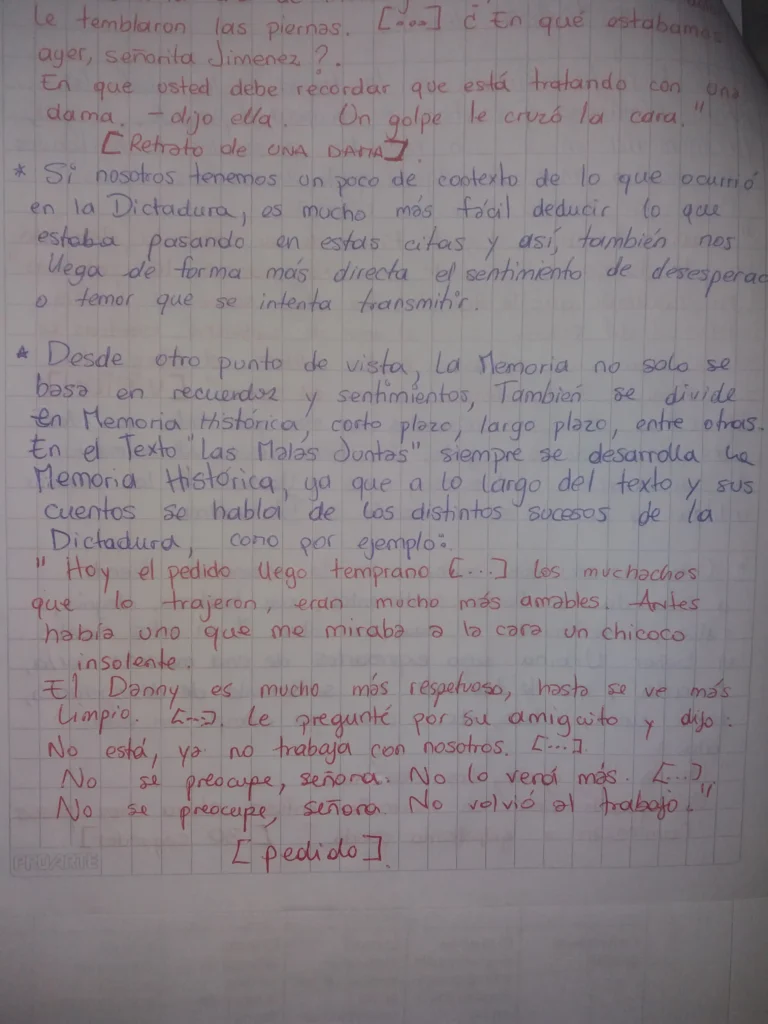 le temblaron las piernas. [...] ¿ En qué estabamos
ayer, señorita Jimenez ?.
En que usted debe recordar que está tratando con una
dama. - dijo ella. Un golpe le cruzó la cara."
[ Retrato de UNA DAMA ].
* Si nosotros tenemos un poco de contexto de lo que ocurrió
en la Dictadura, es mucho más fácil deducir lo que
estaba pasando en estas citas y así, también nos
llega de forma más directa el sentimiento de desesperac
o temor que se intenta transmitir.
* Desde otro punto de vista, La Memoria no solo se
basa en recuerdos y sentimientos, También se divide
en Memoria Histórica, corto plazo, largo plazo, entre otras.
En el Texto "Las Malas Juntas" siempre se desarrolla La
Memoria Histórica, ya que a lo largo del texto y sus
cuentos se habla de los distintos sucesos de la
Dictadura, como por ejemplo:
" Hoy el pedido llego temprano [...] los muchachos
que lo trajeron, eran mucho más amables. Antes
había uno que me miraba a la cara un chicoco
insolente.
El Danny es mucho más respetuoso, hasta se ve más
limpio. [...]. Le pregunté por su amiguito y dijo:
No está, ya no trabaja con nosotros. [...].
No se preocupe, señora. No lo verá más. [...].
No se preocupe, señora. No volvió al trabajo."
[ pedido ].
PROARTE